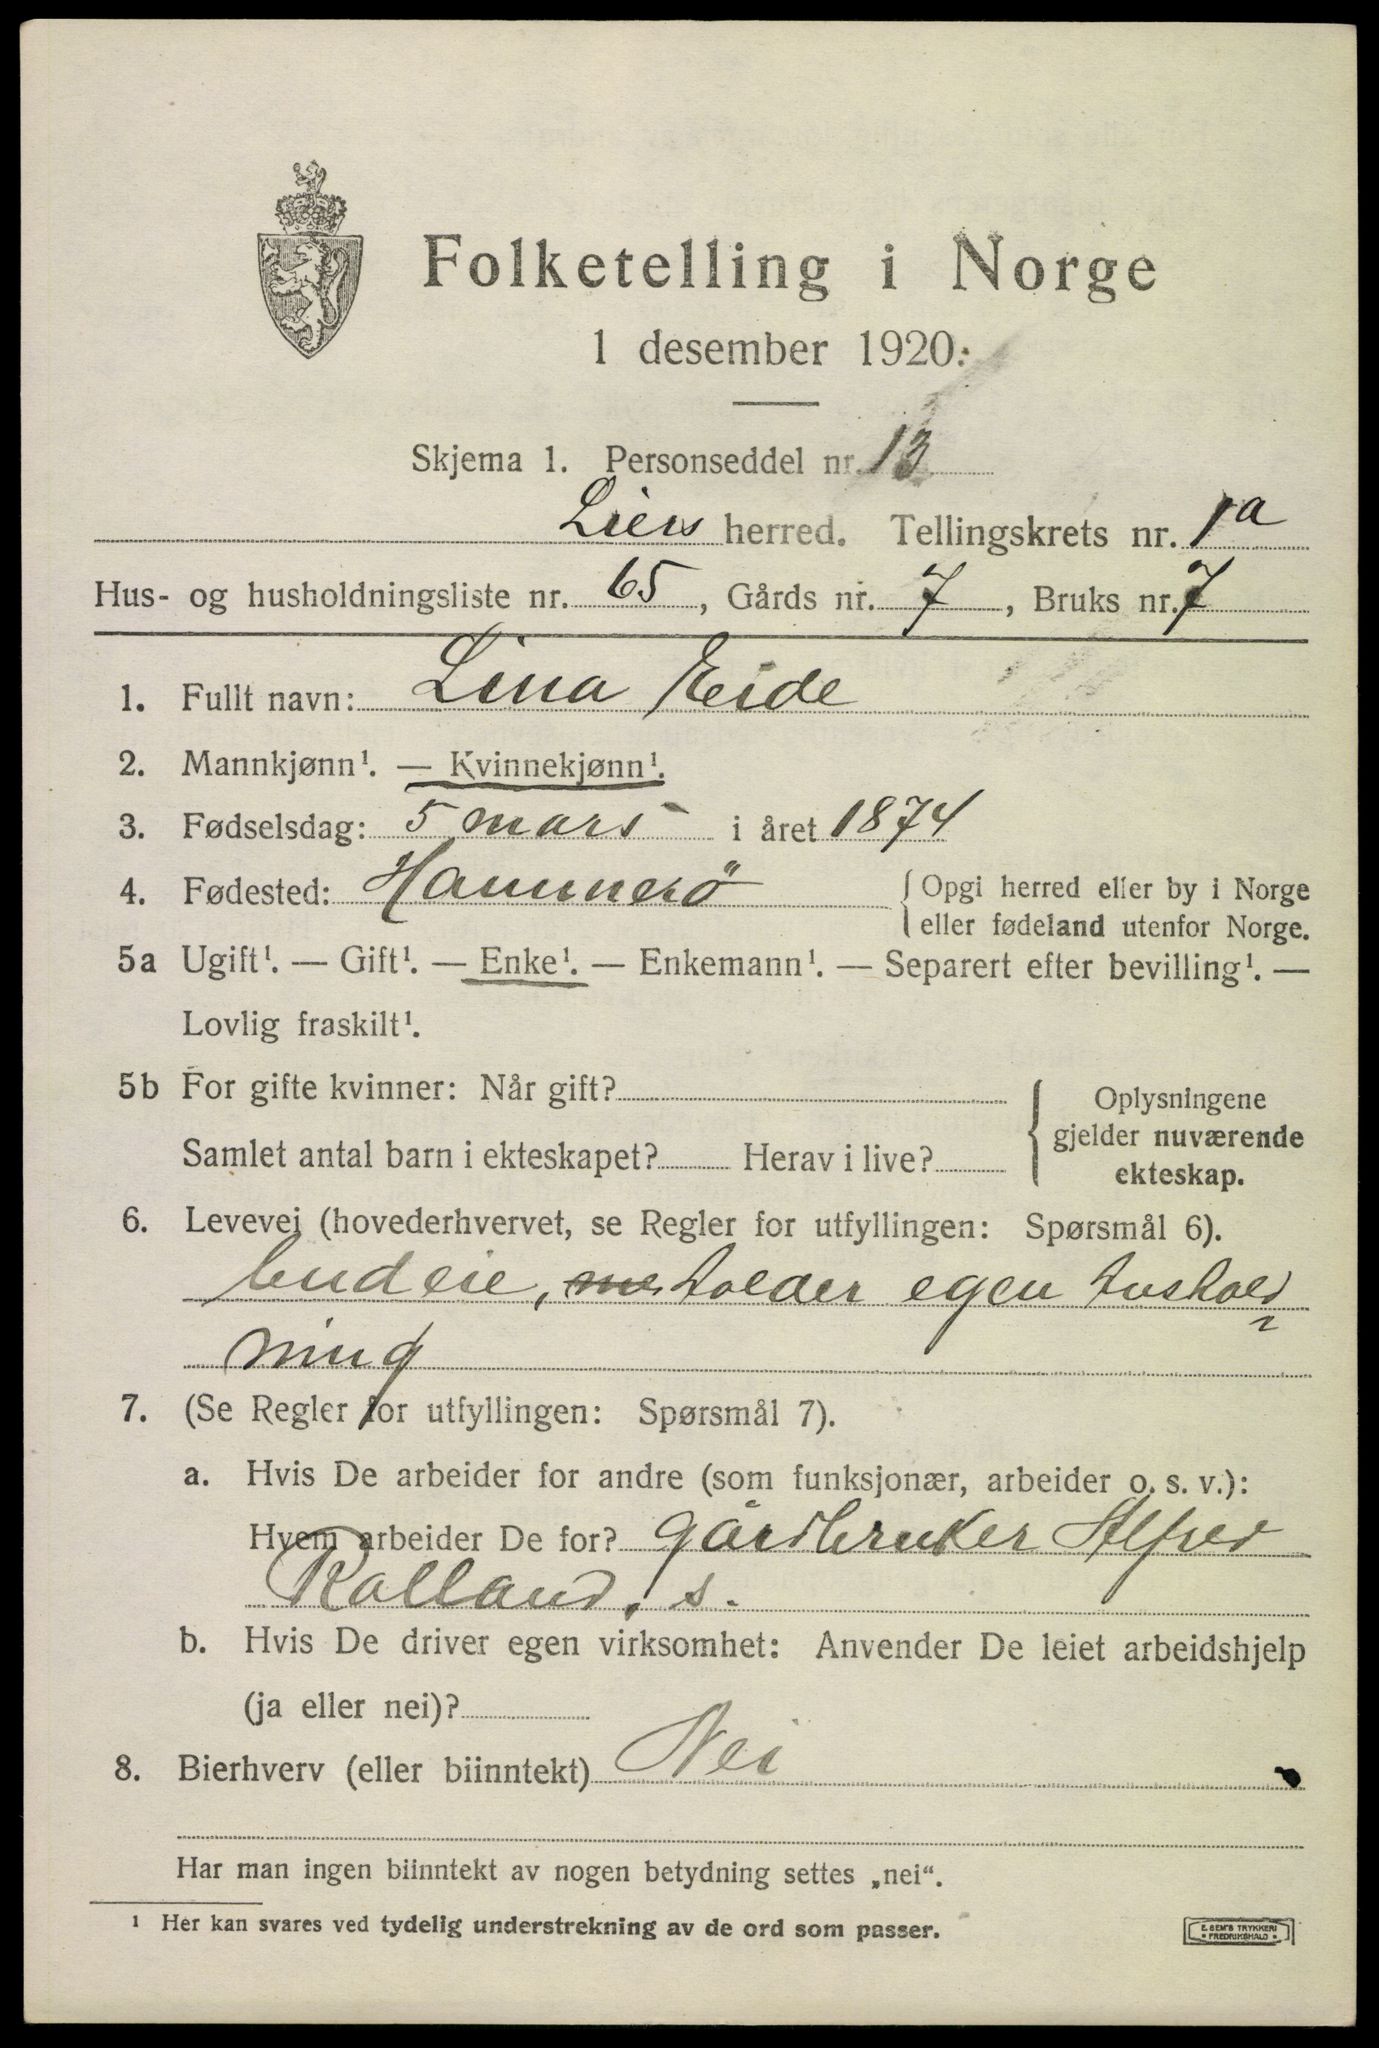 Folketelling i Norge
1 desember 1920.
Skjema 1. Personseddel nr. 13
Liers herred. Tellingskrets nr. 1a
Hus- og husholdningsliste nr. 65, Gårds nr. 7, Bruks nr. 7
1. Fullt navn: Lina Eide
2. Mannkjønn¹. — Kvinnekjønn¹.
3. Fødselsdag: 5 mars i året 1874
4. Fødested: Hammerö { Opgi herred eller by i Norge
eller fødeland utenfor Norge.
5a Ugift¹. — Gift¹. — Enke¹. — Enkemann¹. — Separert efter bevilling¹. —
Lovlig fraskilt¹.
5b For gifte kvinner: Når gift?
Samlet antal barn i ekteskapet? Herav i live?
{ Oplysningene
gjelder nuværende
ekteskap.
6. Levevei (hovederhvervet, se Regler for utfyllingen: Spørsmål 6).
budeie, holder egen hushold
ning
7. (Se Regler for utfyllingen: Spørsmål 7).
a. Hvis De arbeider for andre (som funksjonær, arbeider o. s. v.):
Hvem arbeider De for? gårdbruker Alfred
Kolland. s.
b. Hvis De driver egen virksomhet: Anvender De leiet arbeidshjelp
(ja eller nei)?
8. Bierhverv (eller biinntekt) Nei
Har man ingen biinntekt av nogen betydning settes „nei“.
¹ Her kan svares ved tydelig understrekning av de ord som passer.
E. SEM'S TRYKKERI
• FREDRIKSHALD •